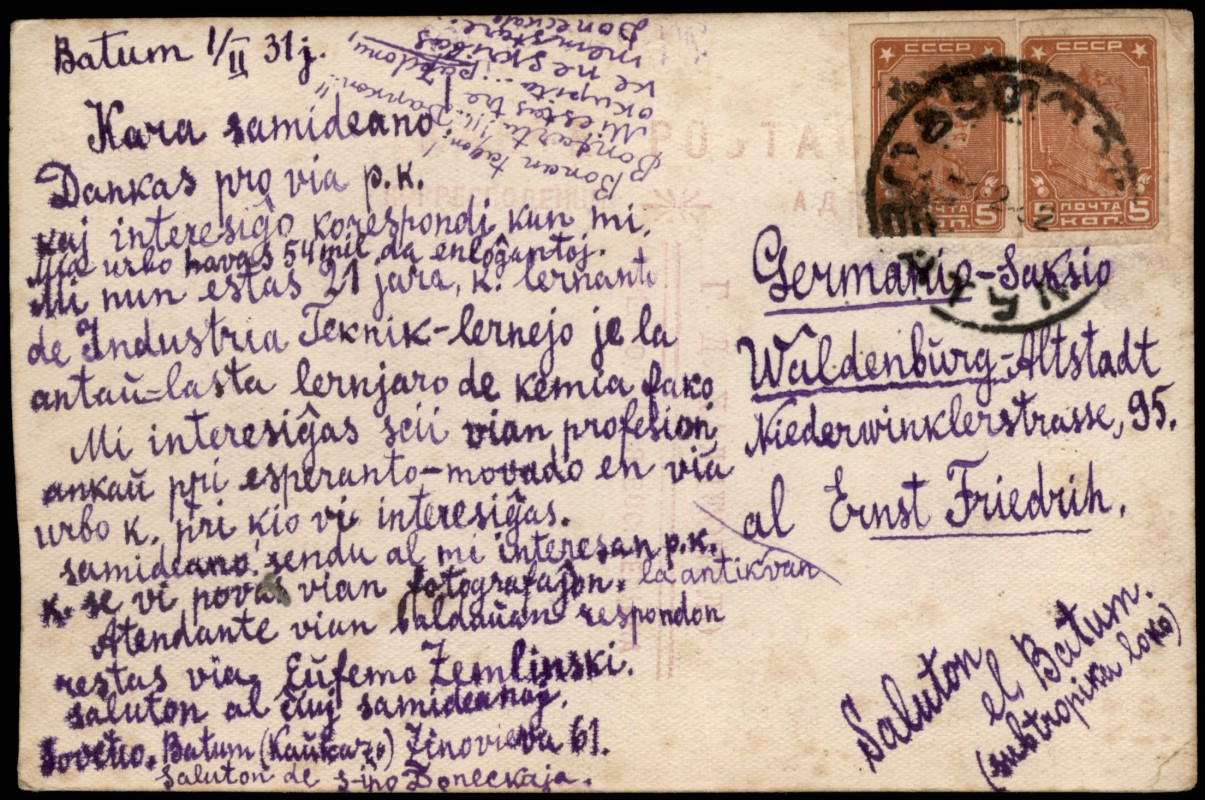 Batum 1/II 31j.
Kara samideano
Dankas pro via p.k.
kaj interesiĝo korespondi kun mi.
Mia urbo havas 54 mil da enloĝantoj.
Mi nun estas 21 jara, k. lernanto
de Industria Teknik-lernejo je la
antaŭ-lasta lernjaro de kemia fako
Mi interesiĝas scii vian profesion,
ankaŭ pri esperanto-movado en via
urbo k. pri kio vi interesiĝas.
samideano, sendu al mi interesan p.k.
k. se vi povas vian fotografaĵon. la antikvan
Atendante vian baldaŭan respondon
restas via Eŭfemo Zemlinski.
saluton al ĉiuj samideanoj.
Sovetio. Batum (Kaŭkazo) Zinovieva 61.
saluton de s-ino Doneckaja.
Bonan tagon!
Dankon!!
Mi estas tre
okupita
ke ne skribas
mem
pardonu,
POSTA
СССР
ПОЧТА
5 КОП. 5
СССР
ПОЧТА
5 КОП. 5
Germanio-Saksio
Waldenburg-Altstadt
Niederwinklerstrasse, 95.
al Ernst Friedrih.
Saluton
el Batum.
(subtropika loko)